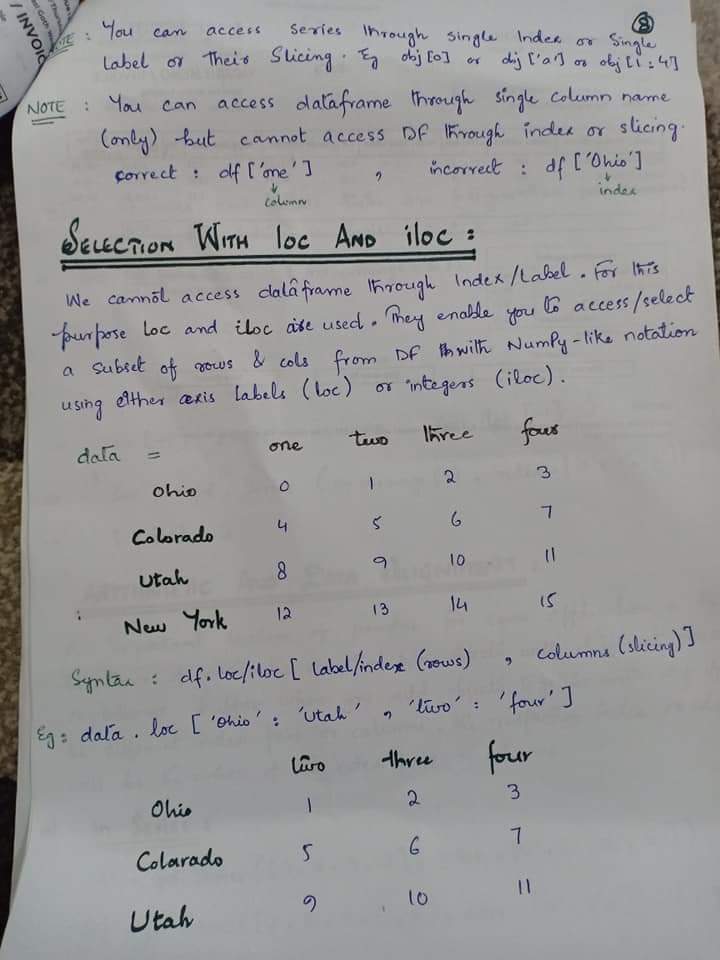 / INVOIC
8
NOTE : You can access series through single Index or Single
Label or Their Slicing. Eg obj[0] or obj['a'] or obj[1:4]
NOTE : You can access dataframe through single column name
(only) but cannot access DF through index or slicing.
correct : df ['one'] , incorrect : df ['Ohio']
↓ column ↓ index
SELECTION WITH loc AND iloc :
We cannot access dataframe through Index/Label. For this
purpose loc and iloc are used. They enable you to access/select
a subset of rows & cols from DF with NumPy-like notation
using either axis labels (loc) or integers (iloc).
data = one two three four
Ohio 0 1 2 3
Colorado 4 5 6 7
Utah 8 9 10 11
New York 12 13 14 15
Syntax : df.loc/iloc [ label/index (rows) , columns (slicing)]
Eg: data.loc ['Ohio' : 'Utah' , 'two' : 'four']
two three four
Ohio 1 2 3
Colarado 5 6 7
Utah 9 10 11